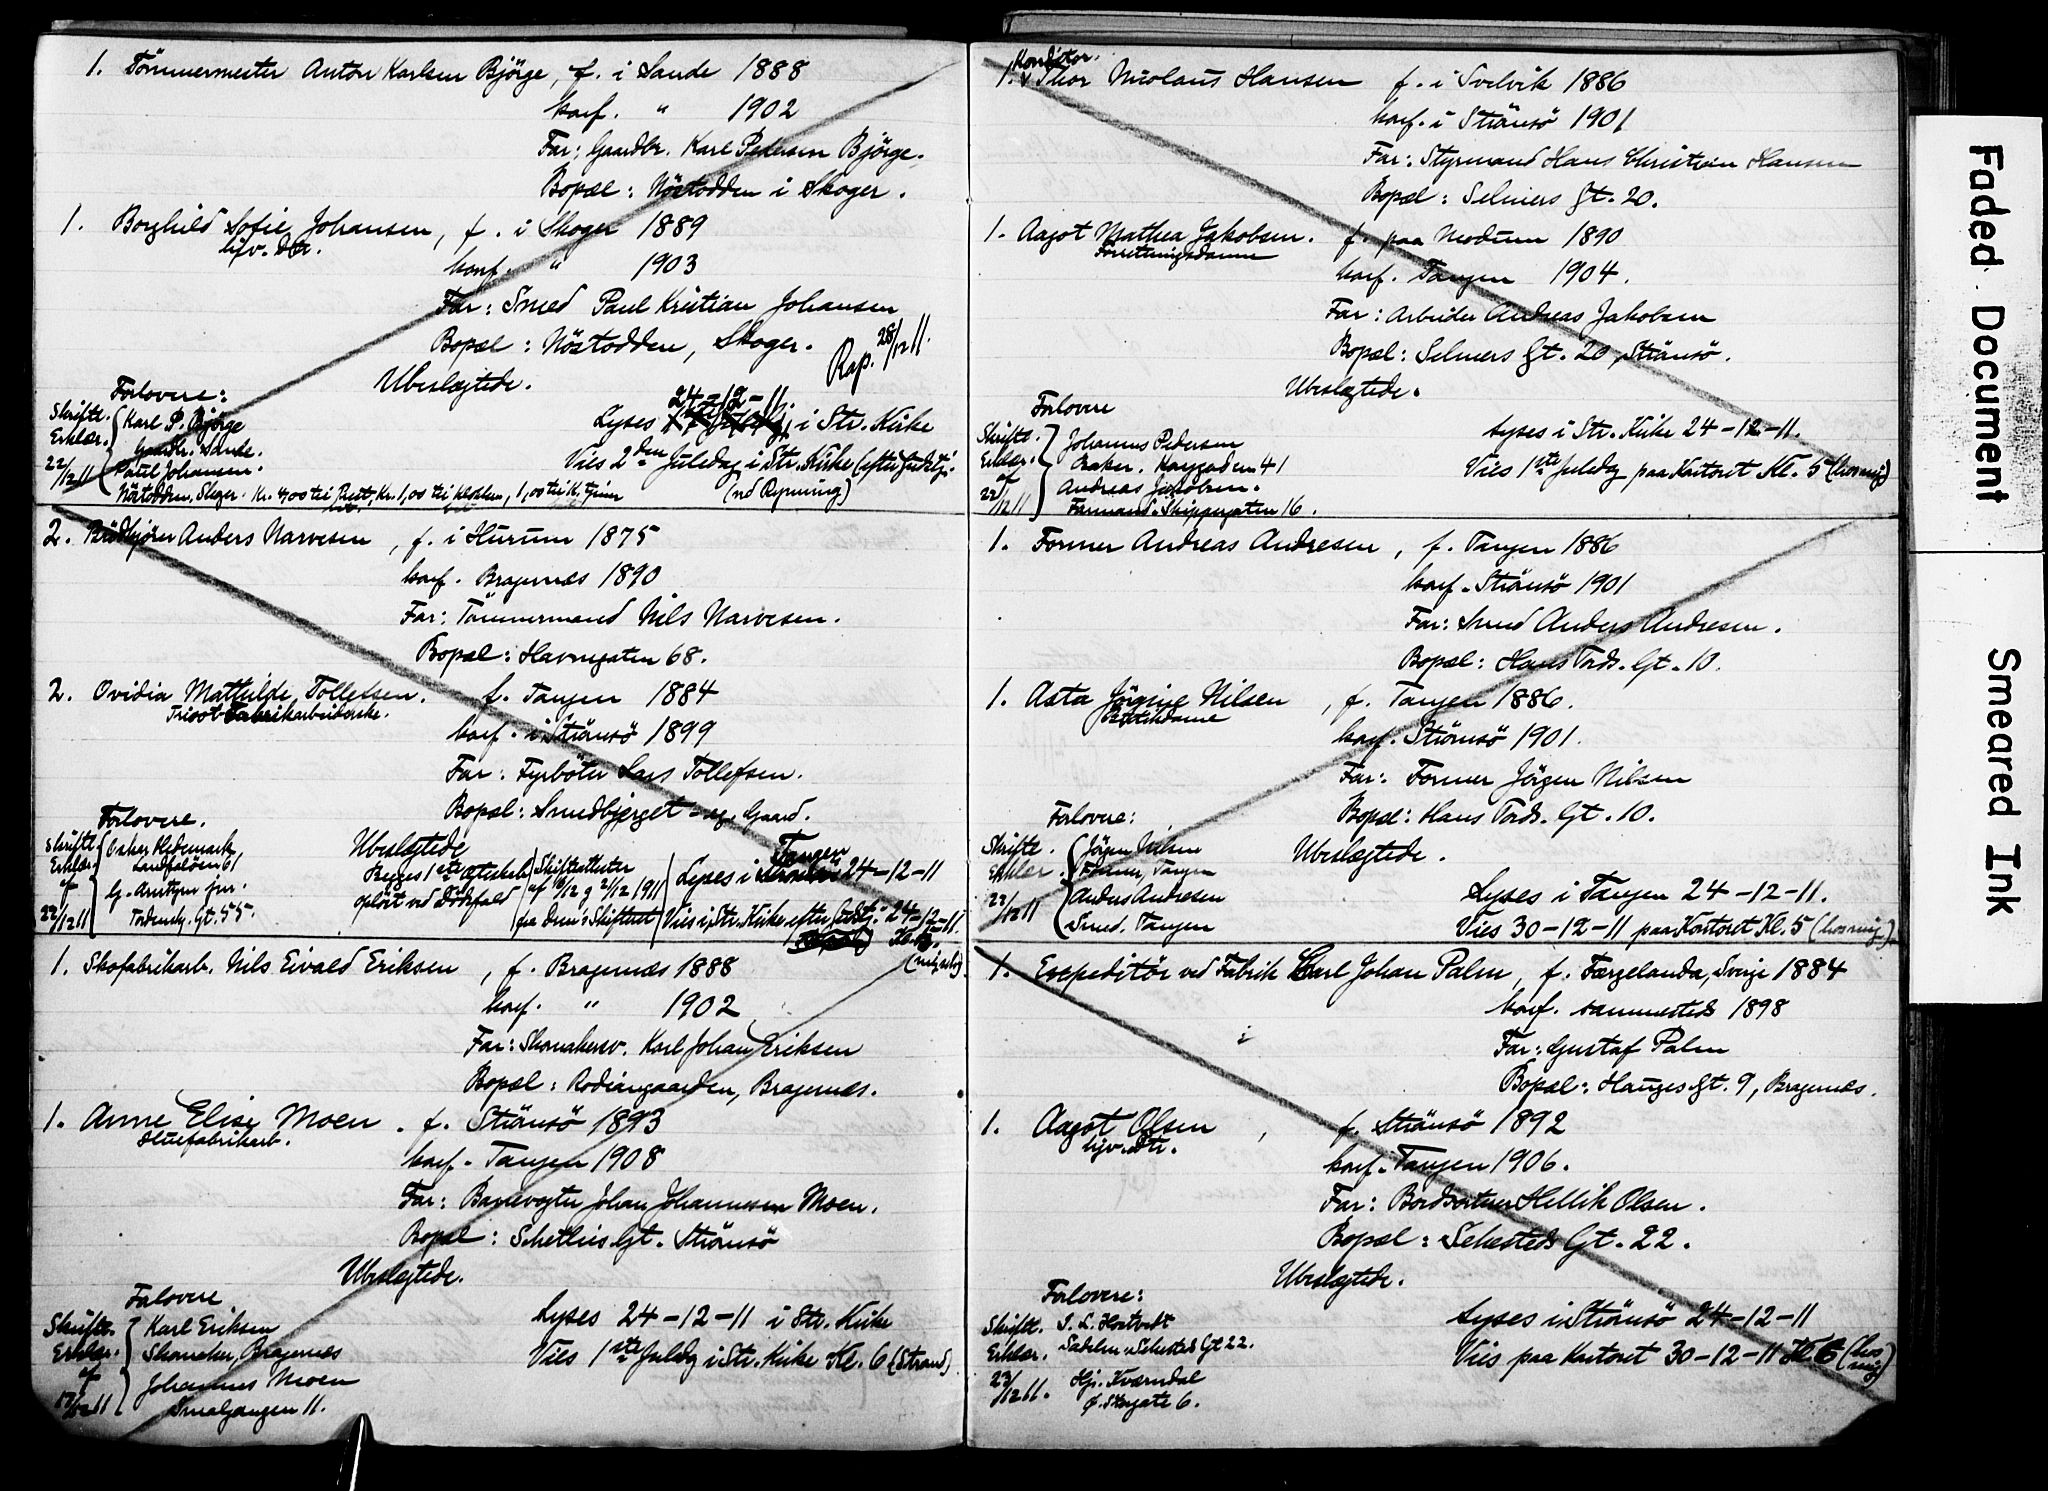 1. Tömmermester Anton Karlsen Bjørge, f. i Sande 1888
konf. " 1902
Far: Gaardbr. Karl Pedersen Bjørge.
Bopæl: Nöstodden i Skoger.
1. Borghild Sofie Johansen, f. i Skoger 1889
hjv. Dtr.
konf. " 1903
Far: Smed Paul Kristian Johansen
Bopæl: Nöstodden, Skoger.
Rap. 28/12 11.
Ubeslægtede.
Forlovere:
Skriftl. Erklær. 22/12 11
Karl P. Bjørge
Gaardbr. Sande.
Paul Johansen.
Nöstodden, Skoger.
24-12-11.
Lyses i Str. Kirke
Vies 2den Juledag i Str. Kirke (efter Gudstj.
2. Anders Narvesen, f. i Hurum 1875
konf. Bragernæs 1890
Far: Tömmermand Nils Narvesen.
Bopæl: Havnegaten 68.
2. Ovidia Mathilde Tollefsen. f. Tangen 1884
Tricot-Fabrikarbeiderske.
konf. i Strömsö 1899
Far: Fyrböter Lars Tollefsen.
Bopæl: Smedbjerget - eg. Gaard.
Forlovere.
Skriftl. Erklær. af 22/12 11
Oskar Hedemark,
Landfalöen 61
Tordensk. Gt. 55.
Ubeslægtede
Begges 1ste ægteskab
oplöst ved Dödsfald
Skifteattester
af 16/12 g 21/12 1911
fra Dram. Skifterett
Lyses i Tangen 24-12-11
Vies i Str. Kirke efter Gudstj. 24-12-11.
1. Skofabrikarb. Nils Eivald Eriksen, f. Bragernæs 1888
konf. " 1902
Far: Skomakersv. Karl Johan Eriksen
Bopæl: Rodiangaarden, Bragernæs.
1. Anne Elise Moen. f. Strömsö 1893
Huefabrikarb.
konf. Tangen 1908
Far: Banevogter Johan Johannessen Moen.
Bopæl: Schetlies Gt. Strömsö
Ubeslægtede.
Forlovere
Skriftl. Erklær. af 17/12 11
Karl Eriksen
Skomaker, Bragernæs
Johannes Moen
Smalgangen 11.
Lyses 24-12-11 i Str. Kirke
Vies 1ste Juledg i Str. Kirke Kl. 6 (Strand)
Konditor.
1. Thor Nicolaus Hansen f. i Svelvik 1886
konf. i Strömsö 1901
Far: Styrmand Hans Christian Hansen
Bopæl: Selmers Gt. 20.
1. Aagot Mathea Jakobsen. f. paa Modum 1890
Forretningsdame
konf. Tangen 1904.
Far: Arbeider Andreas Jakobsen
Bopæl: Selmers Gt. 20, Strömsö.
Ubeslægtede.
Forlovere
Skriftl. Erklær. af 22/12 11
Johannes Pedersen
Baker. Havgaden 41
Andreas Jakobsen.
Formand. Skippergaten 16.
Lyses i Str. Kirke 24-12-11.
Vies 1ste Juledag paa Kontoret Kl. 5 (hos mig)
1. Former Andreas Andresen, f. Tangen 1886
konf. Strömsö 1901
Far: Smed Anders Andresen.
Bopæl: Hans Tords. Gt. 10.
1. Asta Jörgine Nilsen, f. Tangen 1886.
Butikdame
konf. Strömsö 1901.
Far: Former Jörgen Nilsen
Bopæl: Hans Tords. Gt. 10.
Forlovere:
Skriftl. Erklær. 22/12 11
Jörgen Nilsen
Former, Tangen
Anders Andresen
Smed. Tangen
Ubeslægtede.
Lyses i Tangen 24-12-11.
Vies 30-12-11 paa Kontoret Kl. 5 (hos mig.)
1. Expeditör ved Fabrik Carl Johan Palm, f. Færgelanda, Sverige 1884
konf. sammesteds 1898
Far: Gustaf Palm
Bopæl: Hauges Gt. 9, Bragernæs.
1. Aagot Olsen, f. Strömsö 1892
hjv. Dtr.
konf. Tangen 1906.
Far: Bordsorterer Hellik Olsen.
Bopæl: Sehesteds Gt. 22.
Ubeslægtede.
Forlovere:
Skriftl. Erklær. 23/12 11.
Sehesteds Gt 22.
Hj. Kværndal
Ø. Storgate 6.
Lyses i Strömsö 24-12-11
Vies paa Kontoret 30-12-11 Kl. 6 (hos mig)
Faded Document
Smeared Ink